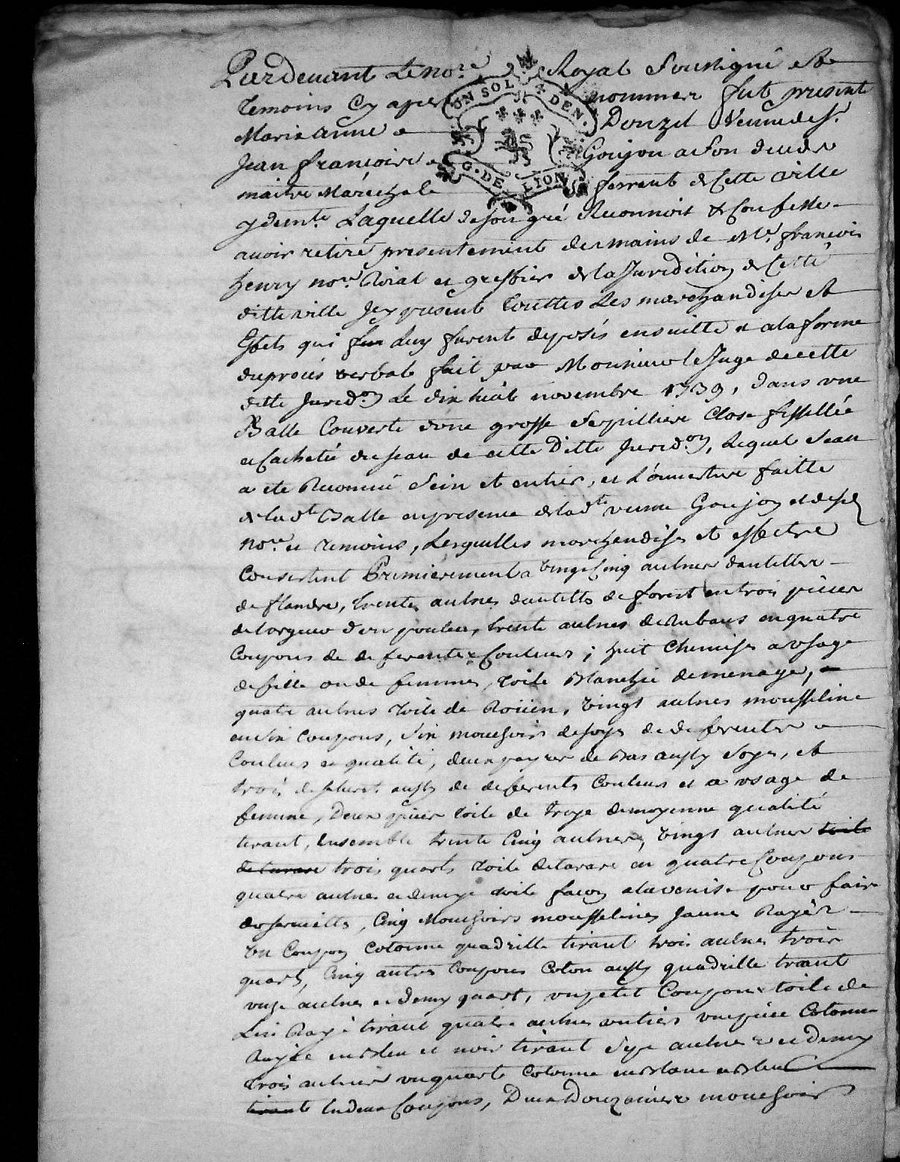 Pardevant le nore Royal Soussigné et
temoins cy apres nommer fut present
UN SOL DEN.
G. DE LION
Marianne Donzel veuve de Sr.
Jean francoise Goujon a son deceds
maitre Maréchal ferrent de Cette ville
y demte. Laquelle de son gré Reconnoit & Confesse
avoir retiré presentement des mains de Me. francois
henry nore. Roial et greffier de la Juridition de Cette
ditte ville Icy present touttes Les marchandises et
Effets qui luy furent deposés ensuitte et a la forme
du procés verbal fait par Monsieur le Juge de cette
ditte Juridon Le dix huit novembre 1739, dans une
Balle Couverte d'une grosse Serpilliere Close fissellée
et Cachetée du seau de cette ditte Juridon, lequel seau
a eté Reconnu Sein et entier, et L'ouverture faitte
de la de. Balle en presence de lad.te veuve Goujon et desd.
nore et temoins, Lesquelles marchandises et effects
Consistent Premierement a vingt Cinq aulnes dantelles
de flandre, trente aulnes dantelle de forest en trois pieces
de largeur d'un poulce, trente aulnes de Rubans en quatre
Coupons de de ferentes Couleurs; huit Chemises a usage
de fille ou de femmes, toile Blanche de menage,
quatre aulnes toile de Roüen, vingt aulnes mousseline
en six coupons, six mouchoirs de soye de de ferentes
Couleurs et qualité, deux payres de Bas aussy Soye, et
trois de fleuret aussy de deferents Couleurs et a usage de
femme, Deux pieces toile de troye de moyenne qualité
tirant, Ensemble trente Cinq aulnes, vingt aulnes toile
de tarare trois quarts toile de tarare en quatre Coupons
quatre aulnes et demye toile facon a la venise pour faire
des serviettes, Cinq Mouchoirs mousselines Jaunes Rayés
un Coupon Cotonne quadrille tirant trois aulnes trois
quart, Cinq autres Coupons Coton aussy quadrille tirant
unze aulnes et demy quart, un petit Coupon toile de
Lin Rayé tirant quatre aulnes entiers une piece Cotonne
Rayée en bleu et noir tirant seze aulnes et Demy
trois aulnes un quarts Cotonne en blanc et bleu
tirants En deux Coupons, Deux Douzaines mouchoirs